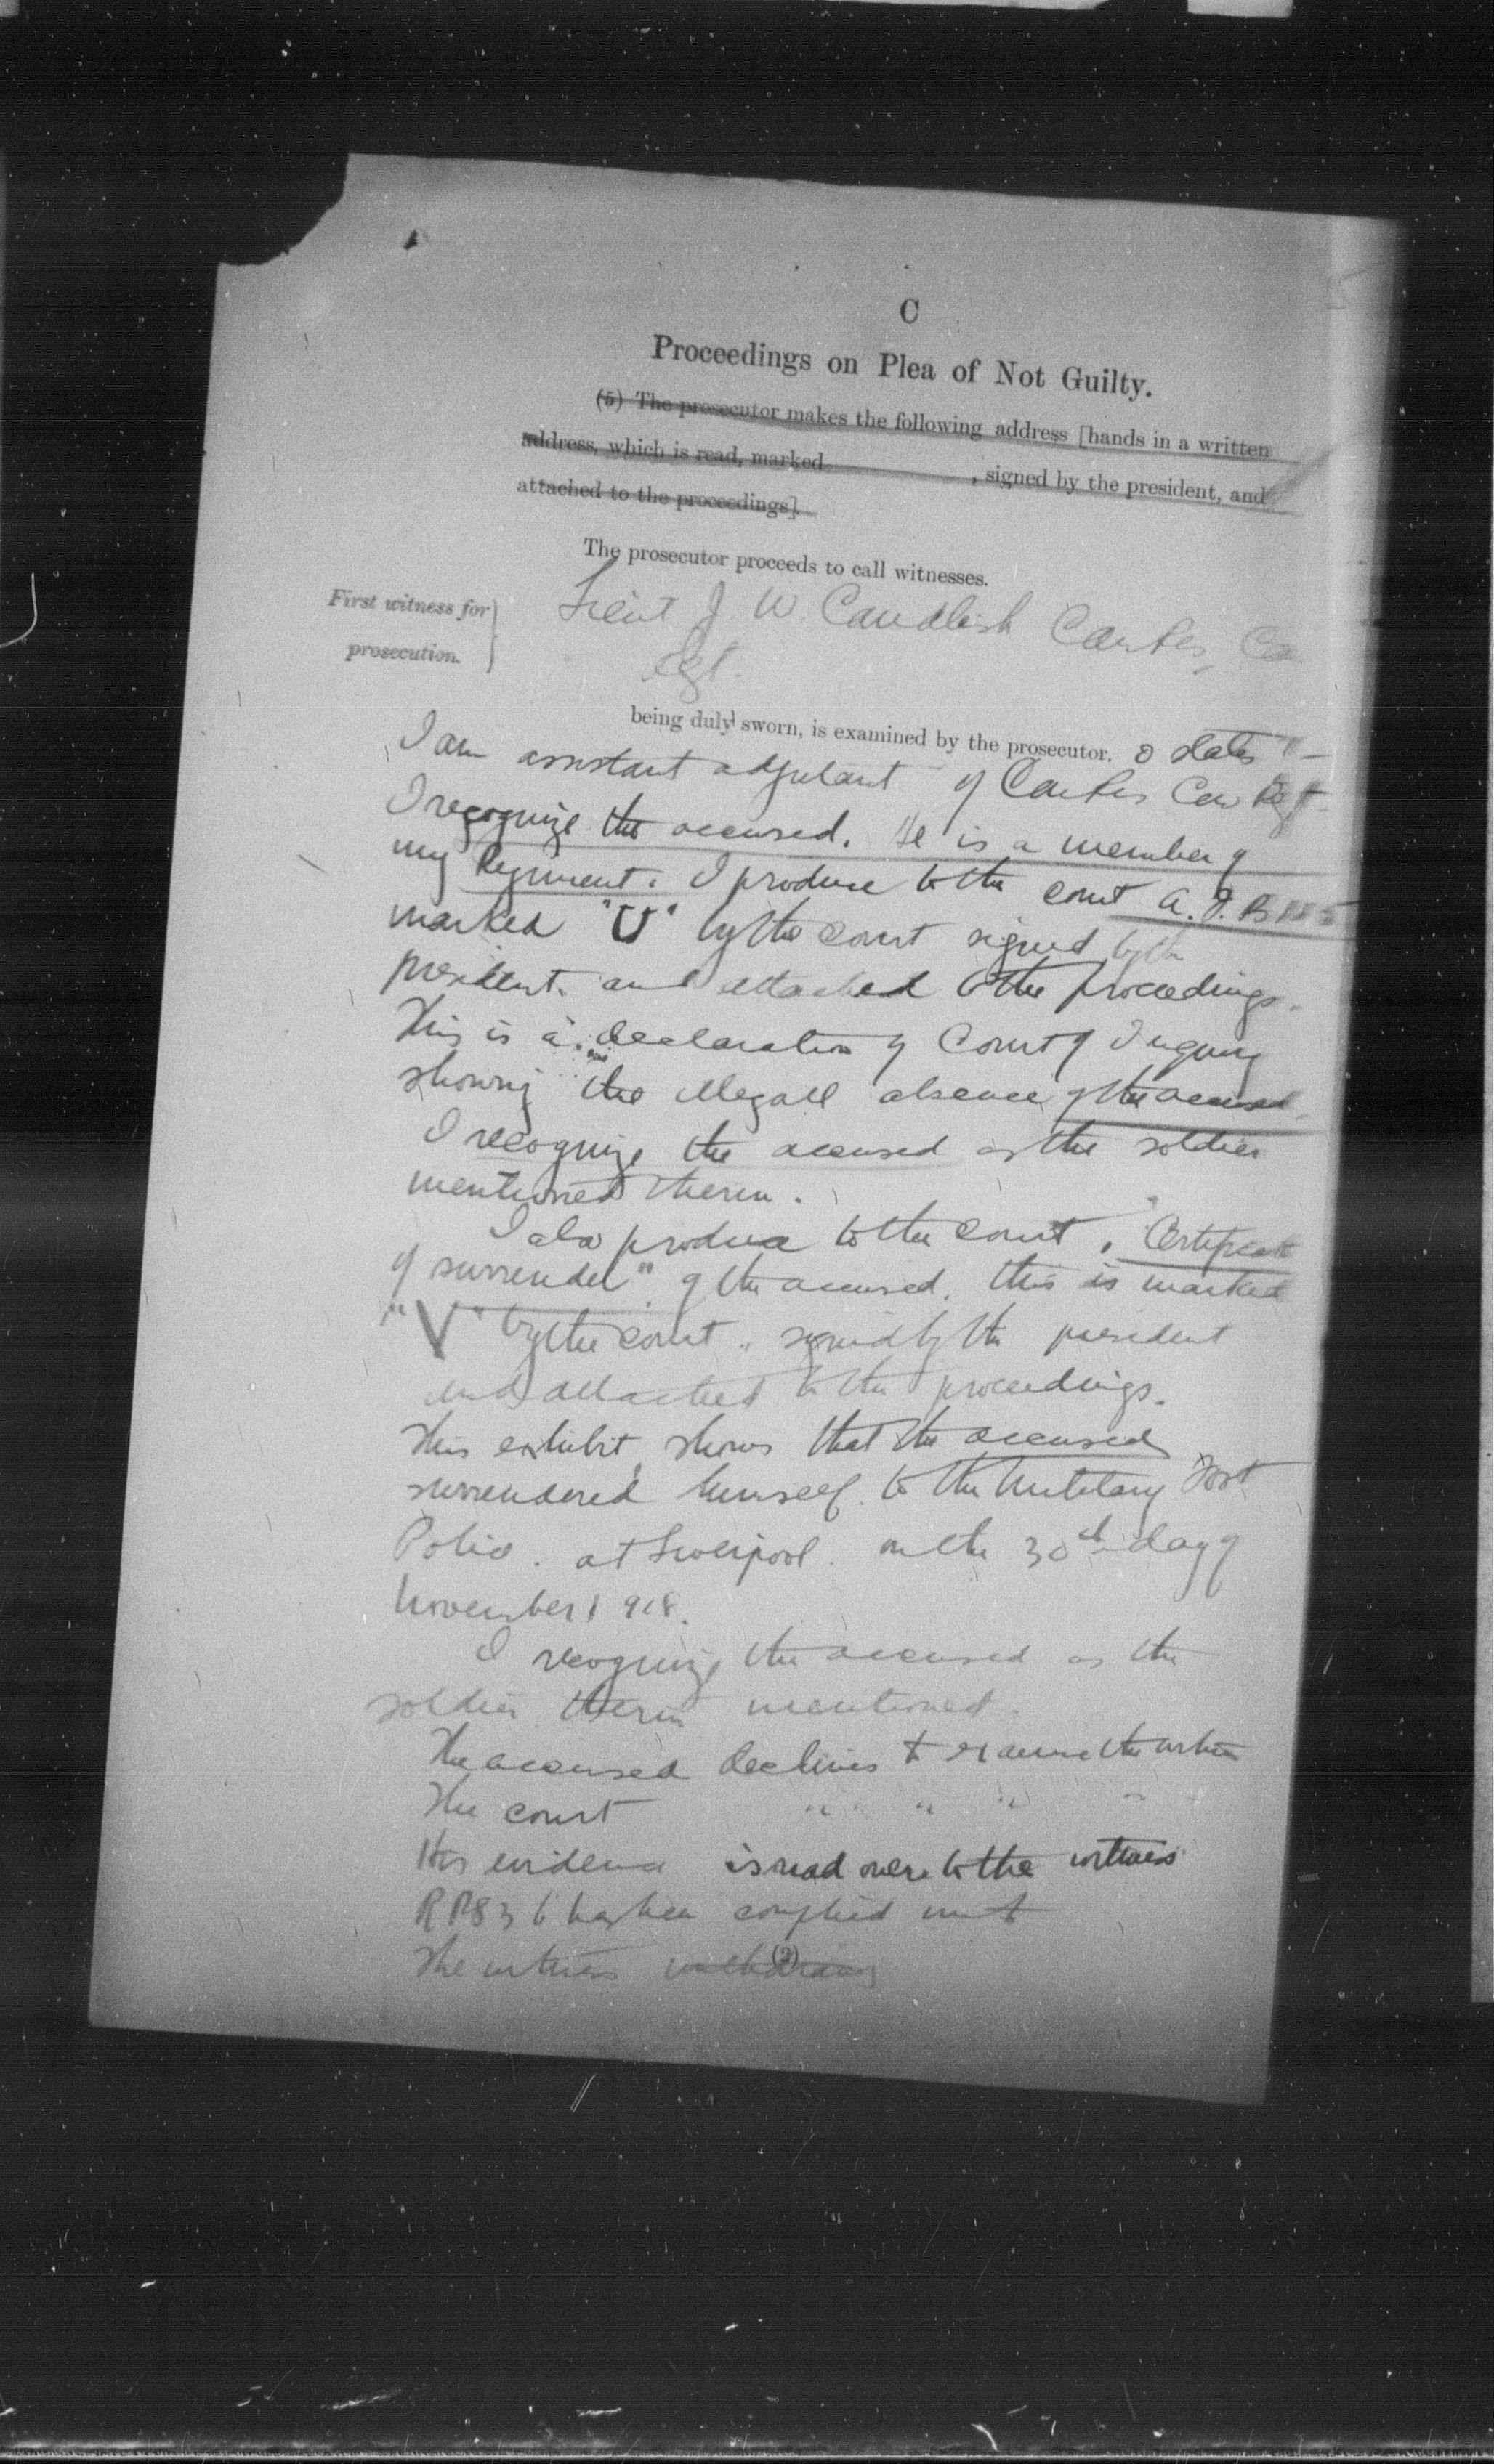 C
Proceedings on Plea of Not Guilty.
(5) The prosecutor makes the following address [hands in a written
address, which is read, marked , signed by the president, and
attached to the proceedings].
The prosecutor proceeds to call witnesses.
First witness for
prosecution.
Lieut J W. Candlish
being duly sworn, is examined by the prosecutor. & states
I am assistant adjutant of
I recognize the accused. He is a member of
my Regiment. I produce to the court A.F. B
marked "U" by the court signed by the
president and attached to the proceedings.
This is a declaration of Court of Inquiry
showing the illegall absence of the accused.
I recognize the accused as the soldier
mentioned therein.
I also produce to the court, "Certificate
of surrender" of the accused. this is marked
"V" by the court signed by the president
and attached to the proceedings.
This exhibit shows that the accused
surrendered himself to the Military Foot
Police at Liverpool on the 30th day of
November 1918.
I recognize the accused as the
soldier therein mentioned.
The accused declines to examine the witness
The court " " " "
His evidence is read over to the witness
RP 83 b has been complied with
The witness withdraws
(2)